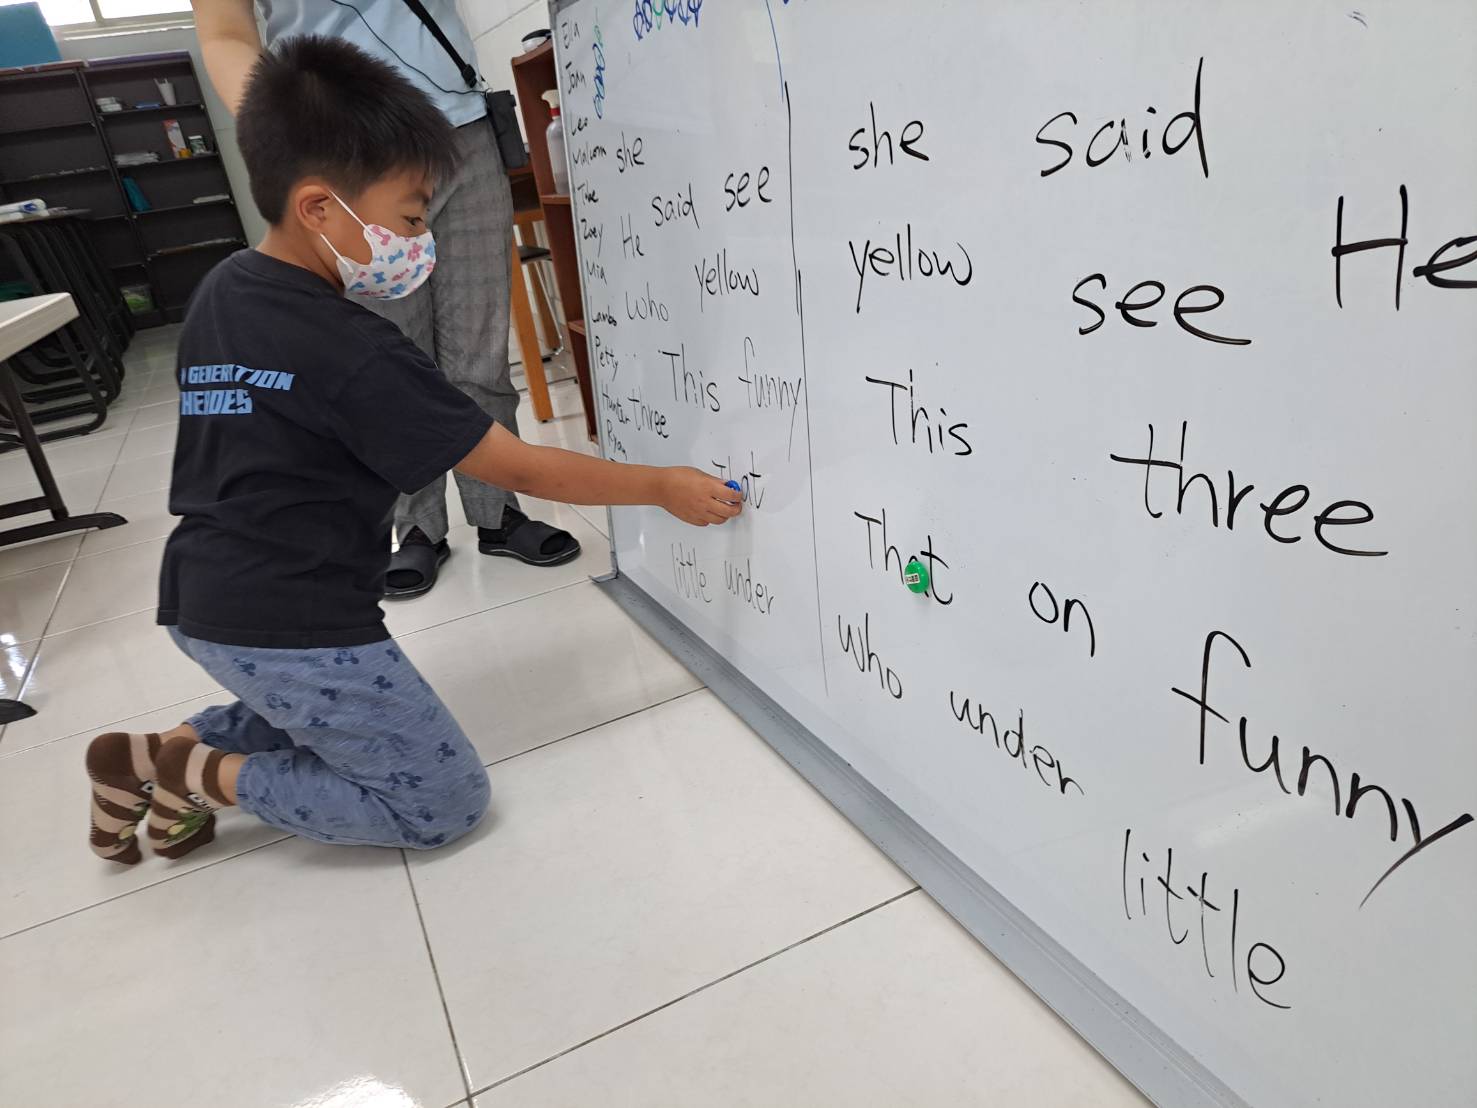 Ella
Joan
Leo
Malcolm
Zoey
Mia
Lambo
Petty
Hunter
Ryan
she
said see
He
who yellow
This funny
three
That
little under
she said
yellow see He
This three
That on
who under funny
little
GENERATION
HEROES